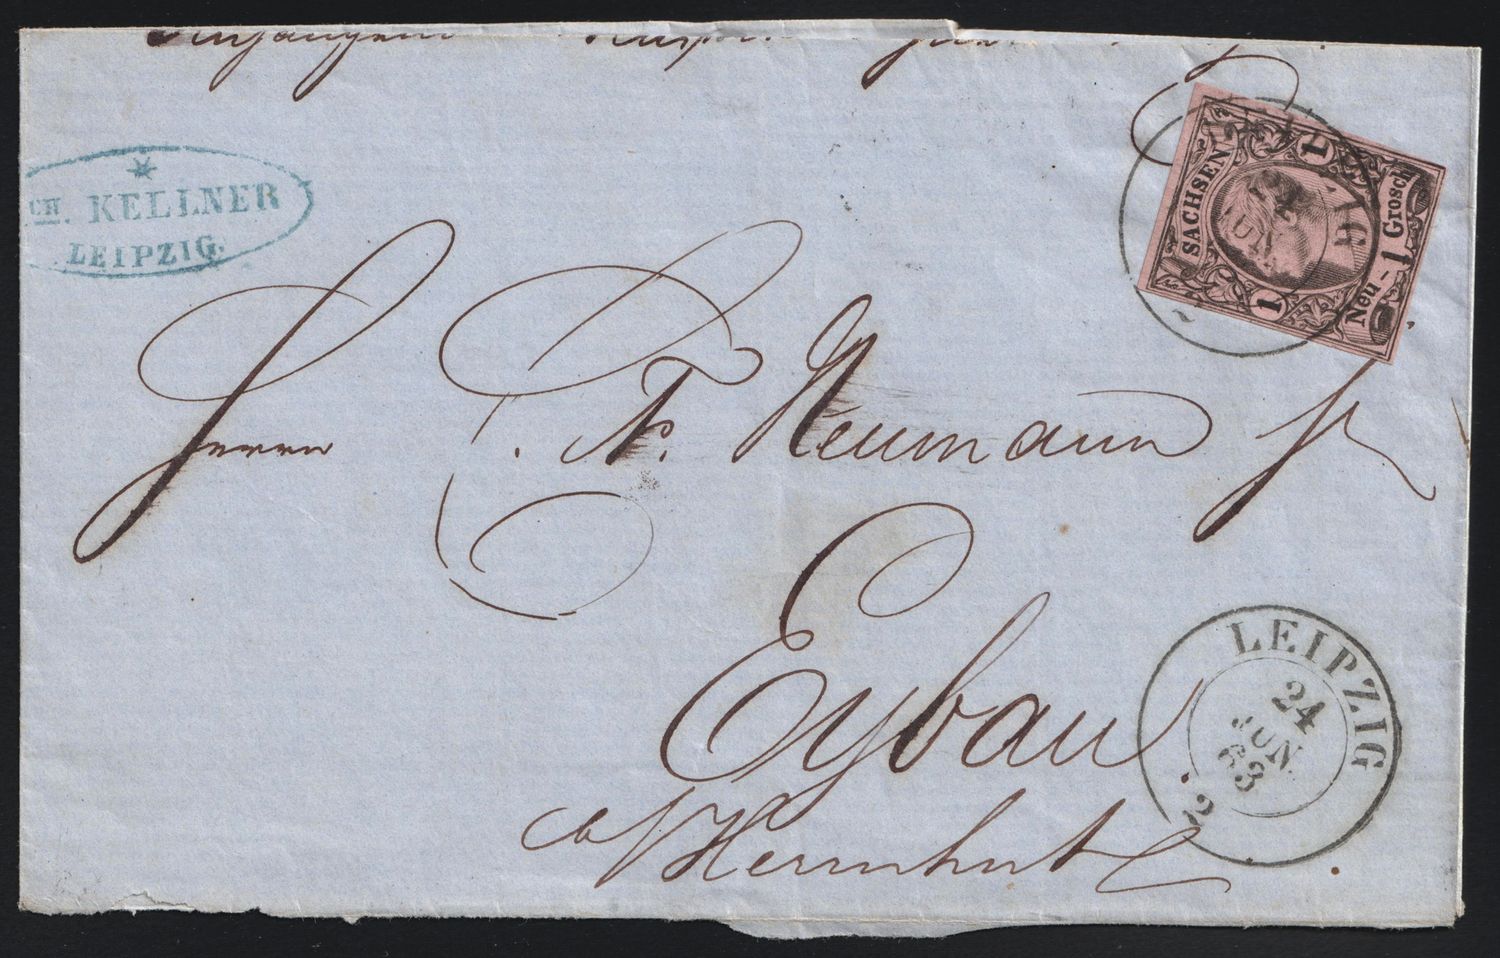 CH. KELLNER
LEIPZIG.
SACHSEN
1
1
Neu - 1 Grosch
JUN
Herrn F. Neumann
Eybau.
Herrnhut
LEIPZIG
24
JUN.
63
2